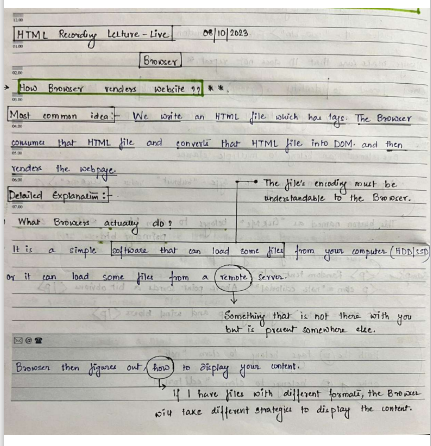 HTML Recording Lecture - Live 08/10/2023
Browser
How Browser renders website ?? **
Most common idea:- We write an HTML file which has tags. The Browser
consumes that HTML file and converts that HTML file into DOM. and then
renders the webpage.
Detailed Explanation:-
The file's encoding must be
understandable to the Browser.
What Browsers actually do ?
It is a simple software that can load some files from your computer (HDD|SSD)
or it can load some files from a remote server.
Something that is not there with you
but is present somewhere else.
Browser then figures out how to display your content.
If I have files with different formats, the Browser
will take different strategies to display the content.